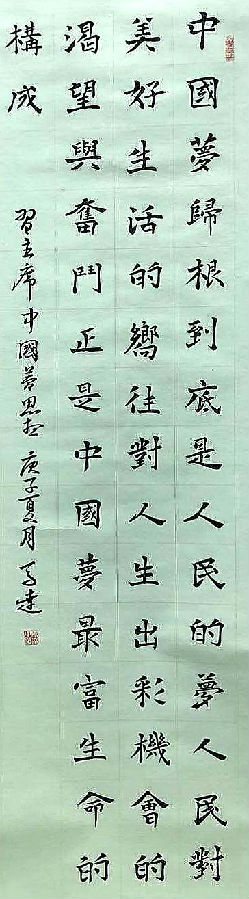 中國夢歸根到底是人民的夢人民對
美好生活的嚮往對人生出彩機會的
渴望與奮鬥正是中國夢最富生命的
構成
習主席中國夢思想 庚子夏月